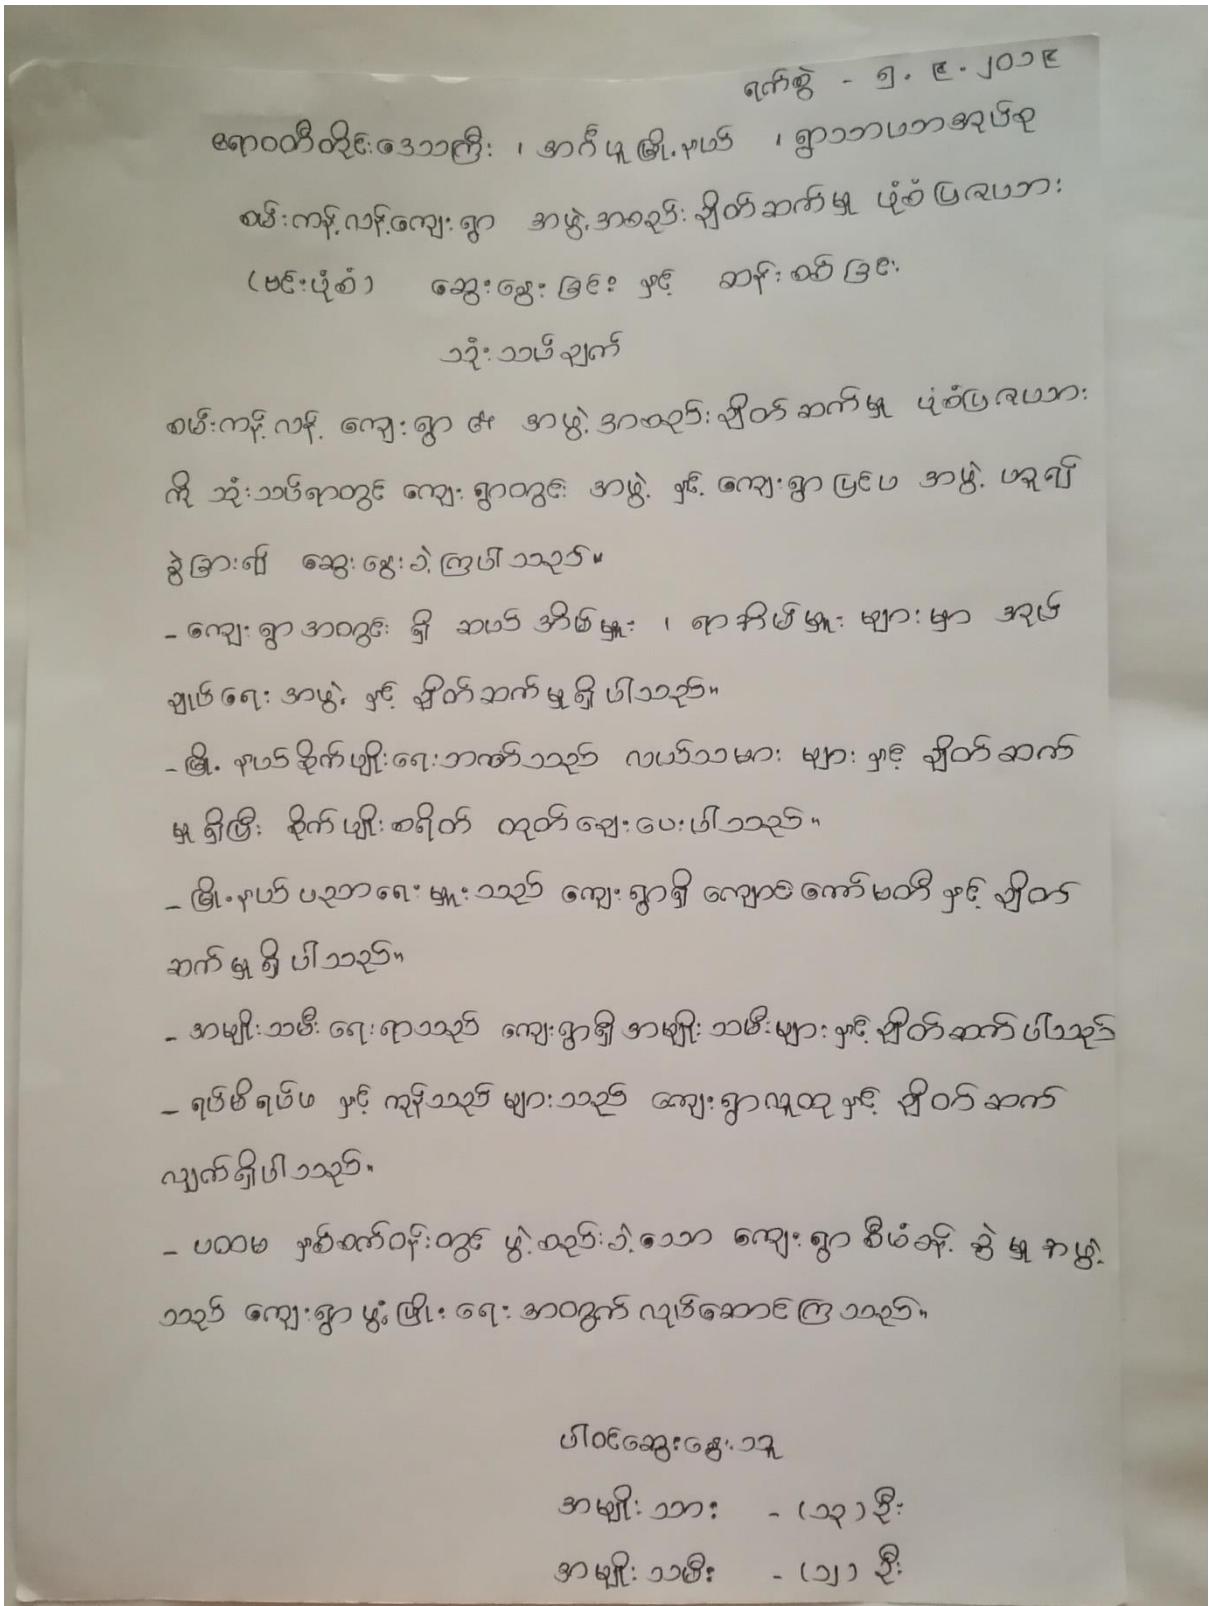 ရက်စွဲ - ၅. ၉. ၂၀၁၉
ဧရာဝတီတိုင်းဒေသကြီး ၊ အင်္ဂပူမြို့နယ် ၊ ရွာသာယာအုပ်စု
စမ်းကန့်လန့်ကျေးရွာ အဖွဲ့အစည်းချိတ်ဆက်မှု ပုံစံပြဇယား
(ဗင်းပုံစံ) ဆွေးနွေးခြင်း နှင့် ဆန်းစစ်ခြင်း
သုံးသပ်ချက်
စမ်းကန့်လန့် ကျေးရွာ ၏ အဖွဲ့အစည်းချိတ်ဆက်မှု ပုံစံပြဇယား
ကို သုံးသပ်ရာတွင် ကျေးရွာတွင်း အဖွဲ့ နှင့် ကျေးရွာပြင်ပ အဖွဲ့ ဟူ၍
ခွဲခြား၍ ဆွေးနွေးခဲ့ကြပါသည်။
- ကျေးရွာအတွင်း ရှိ ဆယ်အိမ်မှူး ၊ ရာအိမ်မှူး များမှာ အုပ်
ချုပ်ရေး အဖွဲ့ နှင့် ချိတ်ဆက်မှုရှိပါသည်။
- မြို့နယ်စိုက်ပျိုးရေးဘဏ်သည် လယ်သမား များ နှင့် ချိတ်ဆက်
မှုရှိပြီး စိုက်ပျိုးစရိတ် ထုတ်ချေးပေးပါသည်။
- မြို့နယ်ပညာရေးမှူးသည် ကျေးရွာရှိ ကျောင်းကော်မတီ နှင့် ချိတ်
ဆက်မှုရှိပါသည်။
- အမျိုးသမီးရေးရာသည် ကျေးရွာရှိ အမျိုးသမီးများ နှင့် ချိတ်ဆက်ပါသည်
- ရပ်မိရပ်ဖ နှင့် ကုန်သည်များသည် ကျေးရွာလူထု နှင့် ချိတ်ဆက်
လျက်ရှိပါသည်။
- ပထမ နှစ်ပတ်ဝန်းတွင် ဖွဲ့စည်းခဲ့သော ကျေးရွာ စီမံခန့်ခွဲမှု အဖွဲ့
သည် ကျေးရွာဖွံ့ဖြိုးရေး အတွက် လုပ်ဆောင်ကြသည်။
ပါဝင်ဆွေးနွေးသူ
အမျိုးသား - (၁၃) ဦး
အမျိုးသမီး - (၁၂) ဦး